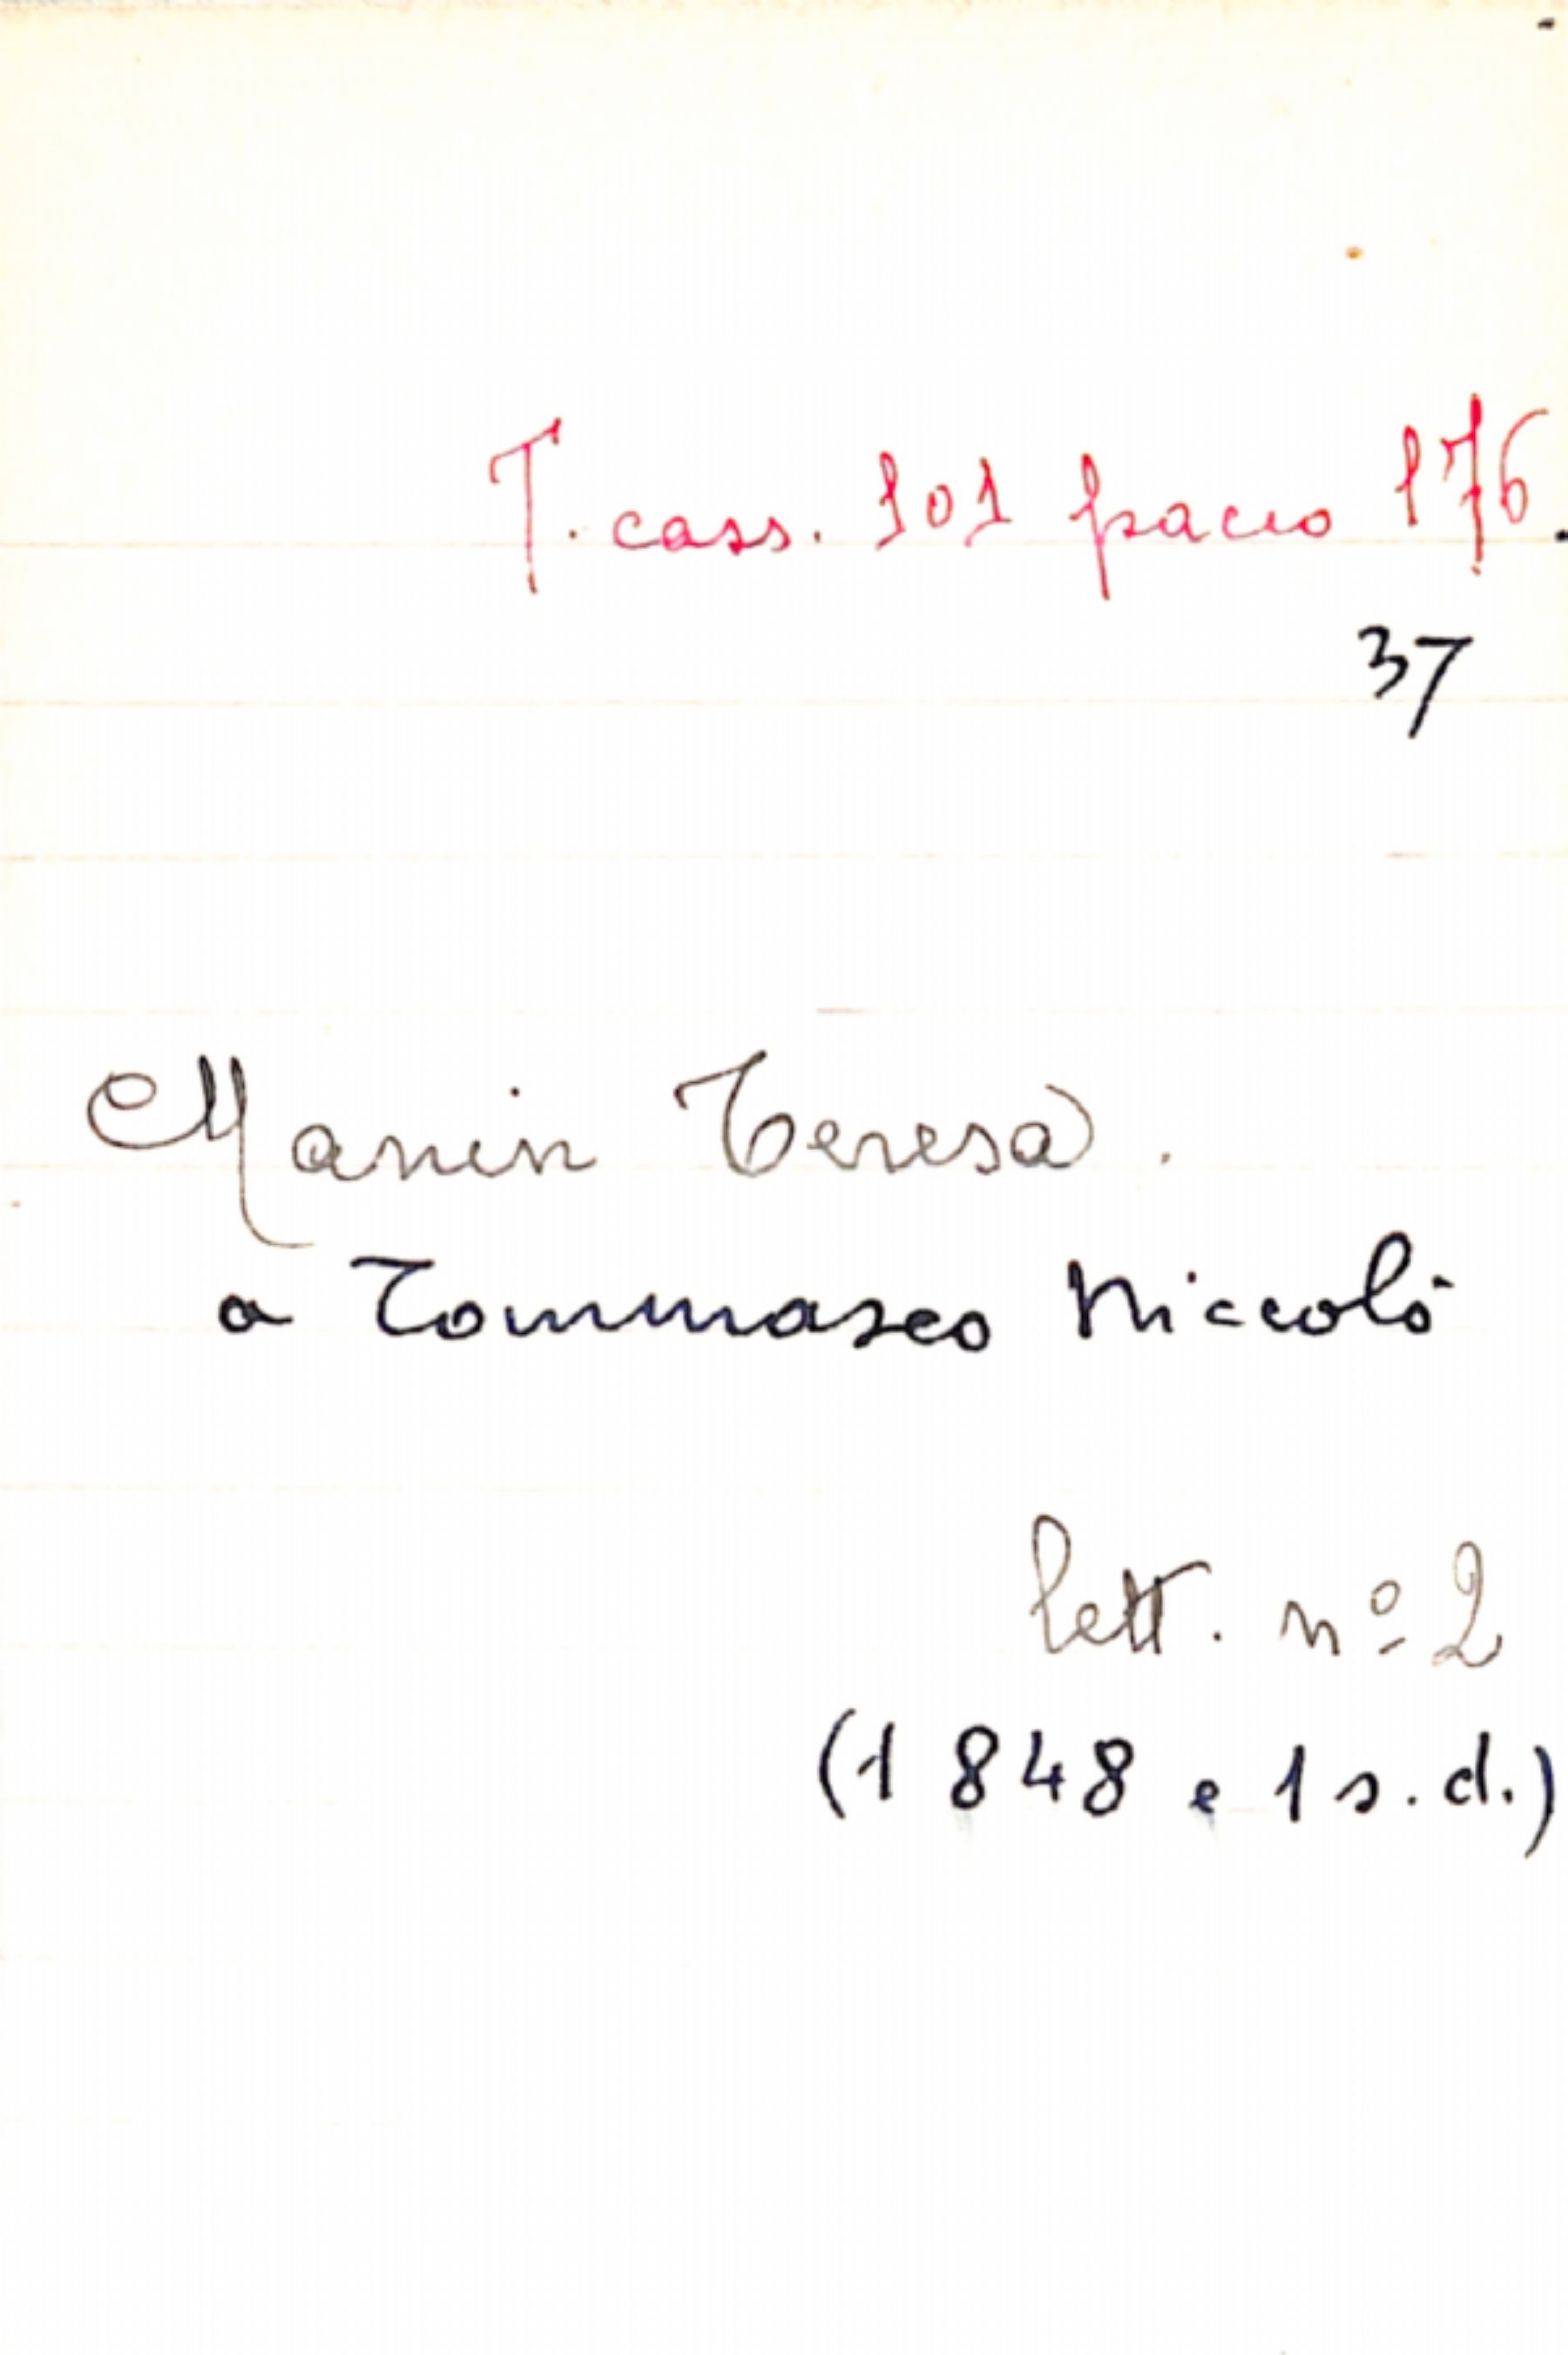 T. cass. 101 pacco 176.
37
Manin Teresa.
a Tommaseo Niccolò
lett. nº 2
(1848 e 1 s.d.)